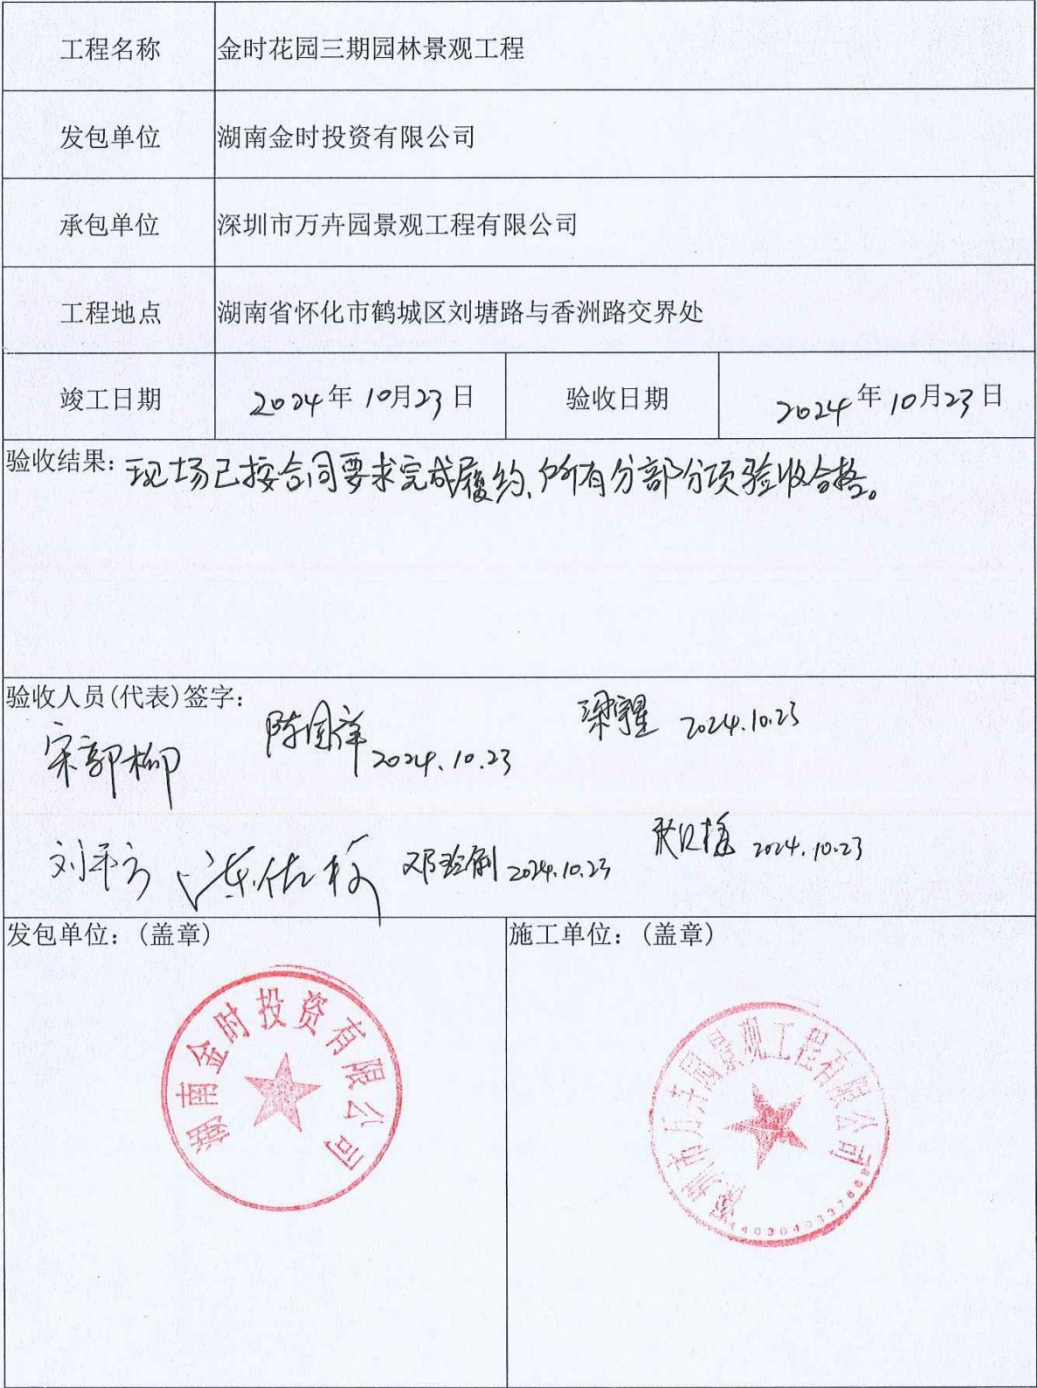 工程名称 金时花园三期园林景观工程
发包单位 湖南金时投资有限公司
承包单位 深圳市万卉园景观工程有限公司
工程地点 湖南省怀化市鹤城区刘塘路与香洲路交界处
竣工日期 2024年10月23日 验收日期 2024年10月23日
验收结果：现场已按合同要求完成履约,所有分部分项验收合格。
验收人员(代表)签字：
宋郭柳 陈国祥 2024.10.23 2024.10.23
刘平方 2024.10.23 2024.10.23
发包单位：(盖章) 施工单位：(盖章)
湖南金时投资有限公司
深圳市万卉园景观工程有限公司